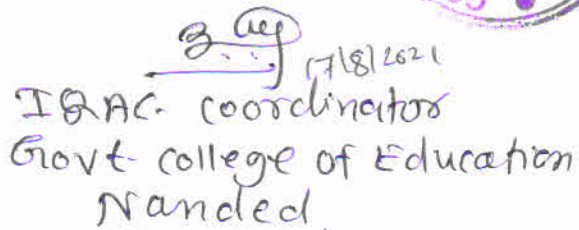 17/8/2021
IQAC. coordinator
Govt. college of Education
Nanded.